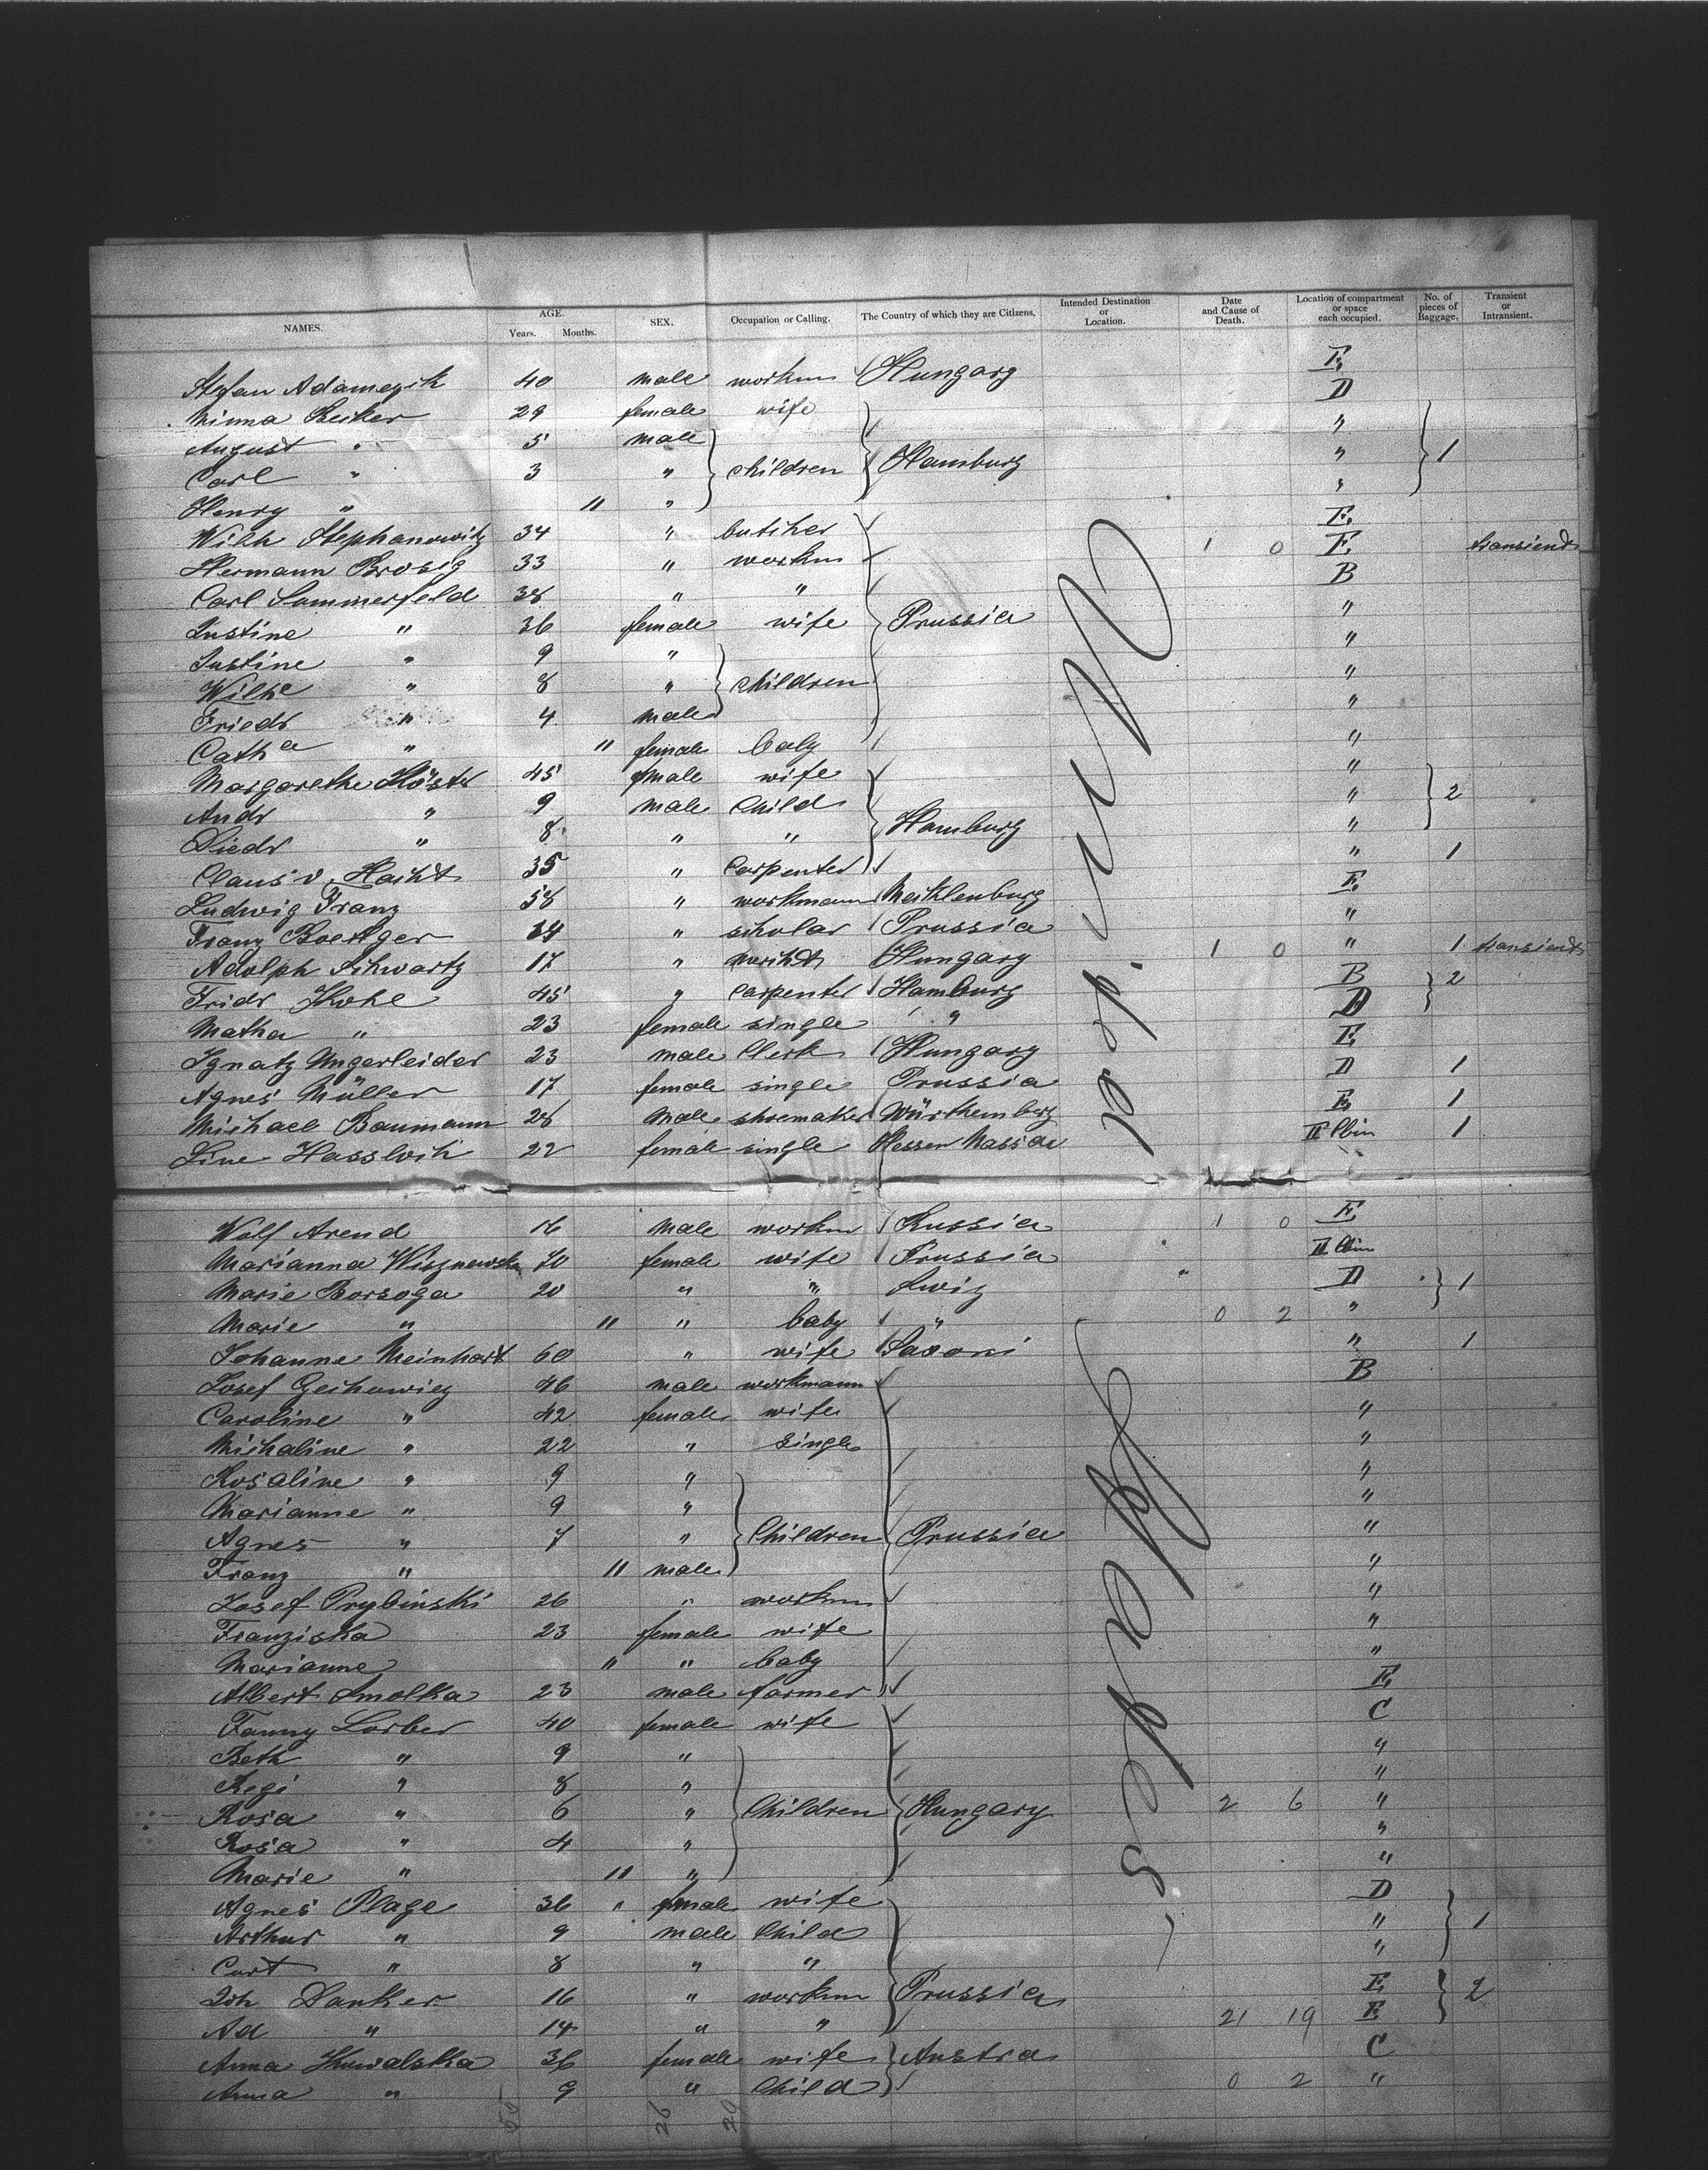 NAMES. AGE. Years. Months. SEX. Occupation or Calling. The Country of which they are Citizens. Intended Destination or Location. Date and Cause of Death. Location of compartment or space each occupied. No. of pieces of Baggage. Transient or Intransient.
Stefan Adamezik 40 male workm Hungary E
Minna Becker 29 female wife D
August " 5 male "
Carl " 3 " children Hamburg " 1
Henry " 11 " "
Wilh Stephanowitz 34 " butcher E
Hermann Brosig 33 " workm 1 0 E transient
Carl Sommerfeld 38 " " B
Justine " 36 female wife Prussia "
Justine " 9 " "
Wilhe " 8 " children "
Friedr " 4 male "
Catha " 11 female baby "
Margarethe Höster 45 female wife "
Andr " 9 male Child " 2
Diedr " 8 " " Hamburg "
Claus v. Hacht 35 " Carpenter " 1
Ludwig Franz 58 " workmann Mecklenburg E
Franz Boettger 14 " scholar Prussia "
Adolph Schwartz 17 " Hungary 1 0 " 1 transient
Fridr Kohl 45 " Carpenter Hamburg B 2
Matha " 23 female single " D
Ignatz Ungerleider 23 male Clerk Hungary E
Agnes Müller 17 female single Prussia D 1
Michael Baumann 28 Male shoemaker Württemberg E 1
Line 22 female single Hessen Nassau II Cbin 1
Wolf Arend 16 Male workm Russia 1 0 E
Marianna Wisznewska 70 female wife Prussia II Cbin
Marie Borsoga 20 " " " D 1
Marie " 11 " baby " 0 2 "
Johanne Meinhart 60 " wife " 1
Josef 46 male workmann B
Caroline " 42 female wife "
Michaline " 22 " Single "
Rosaline " 9 " "
Marianne " 9 " "
Agnes " 7 " Children Prussia "
Franz " 11 male "
Josef Prybinski 26 " workm "
Franziska 23 female wife "
Marianne 11 " baby "
Albert Smolka 23 male farmer E
Fanny Lorber 40 female wife C
Beth " 9 " "
Regi " 8 " "
Rosa " 6 " Children Hungary 2 6 "
Rosa " 4 " "
Marie " 11 " "
Agnes Plage 36 " female wife D
Arthur " 9 male Child " 1
Curt " 8 " " "
Joh Danker 16 " workm Prussia E 2
Ad " 14 " " 21 19 E
Anna Kuwalska 36 female wife Austria C
Anna " 9 " Child 0 2 "
50 26 29